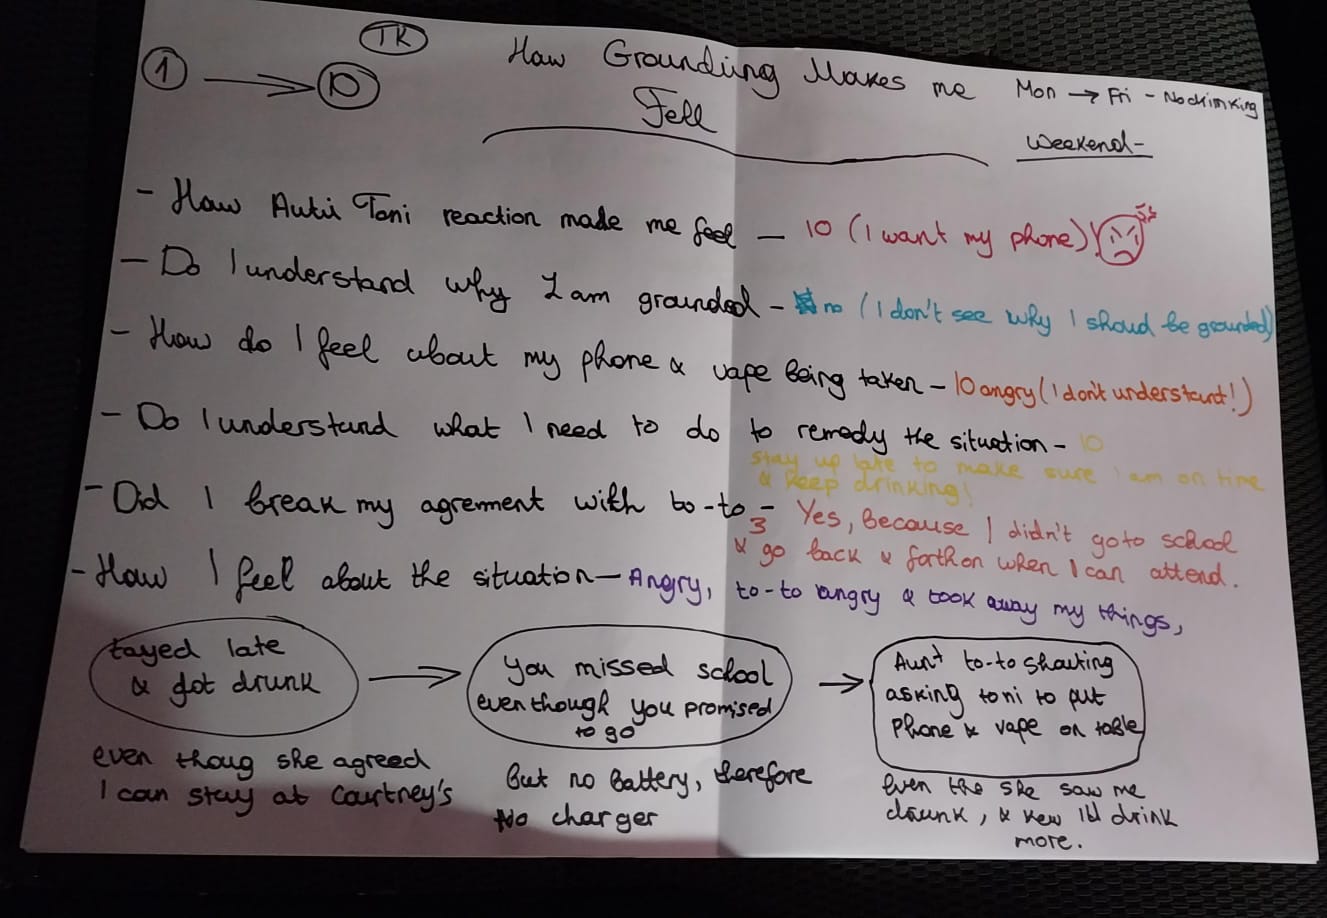 TK
1 → 10
How Grounding Makes me
Fell
Mon → Fri - No drinking
Weekend -
- How Autii Toni reaction made me feel - 10 (I want my phone)!
- Do I understand why I am grounded - no (I don't see why I shoud be grounded)
- How do I feel about my phone & vape being taken - 10 angry (I don't understand!)
- Do I understand what I need to do to remedy the situation - 10
stay up late to make sure I am on time
& keep drinking!
- Did I break my agrement with to-to - Yes, Because I didn't go to school
3
& go back & forth on when I can attend.
- How I feel about the situation - Angry, to-to angry & took away my things,
tayed late
& got drunk
even thoug she agreed
I can stay at Courtney's
you missed school
even though you promised
to go
But no Battery, therefore
No charger
Aunt to-to shouting
asking toni to put
Phone & vape on table
Even tho she saw me
drunk, & kew I'd drink
more.